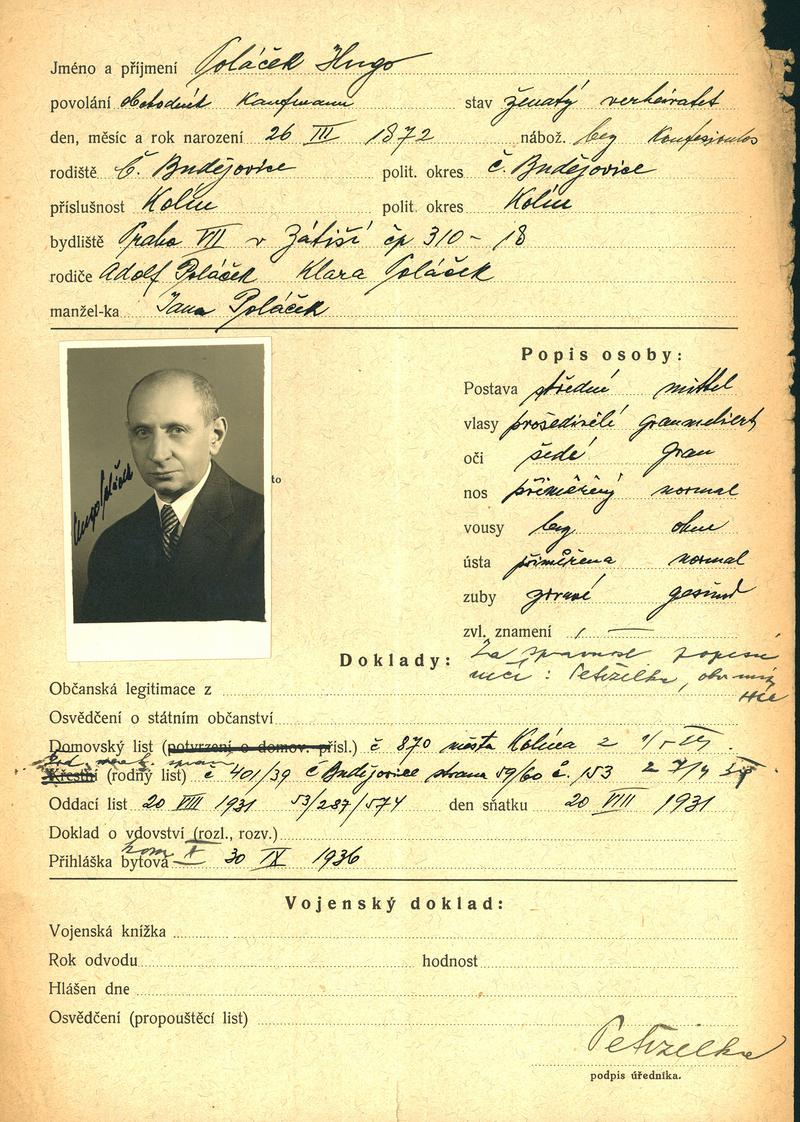 Jméno a příjmení Poláček Hugo
povolání obchodník Kaufmann stav ženatý verheiratet
den, měsíc a rok narození 26 III 1872 nábož. bez Konfessionslos
rodiště Č. Budějovice polit. okres Č. Budějovice
příslušnost Kolín polit. okres Kolín
bydliště Praha VII v Zátiší čp 310 - 18
rodiče Adolf Poláček Klara Poláček
manžel-ka Jana Poláček
Popis osoby:
Postava střední mittel
vlasy prošedivělé graumeliert
oči šedé grau
nos přiměřený normal
vousy bez ohne
ústa přiměřena normal
zuby zdravé gesund
zvl. znamení
Hugo Poláček
to
Za správnost popisu
ručí: Petržilka,
Doklady:
Občanská legitimace z
Osvědčení o státním občanství
Domovský list (potvrzení o domov. přísl.) č 870 města Kolína z
Křestní (rodný list) č 401/39 Č Budějovice strana 59/60 č. 153
Oddací list 20 VIII 1931 53/287/574 den sňatku 20 VIII 1931
Doklad o vdovství (rozl., rozv.)
Přihláška bytová 30 IX 1936
Vojenský doklad:
Vojenská knížka
Rok odvodu hodnost
Hlášen dne
Osvědčení (propouštěcí list)
Petržilka
podpis úředníka.